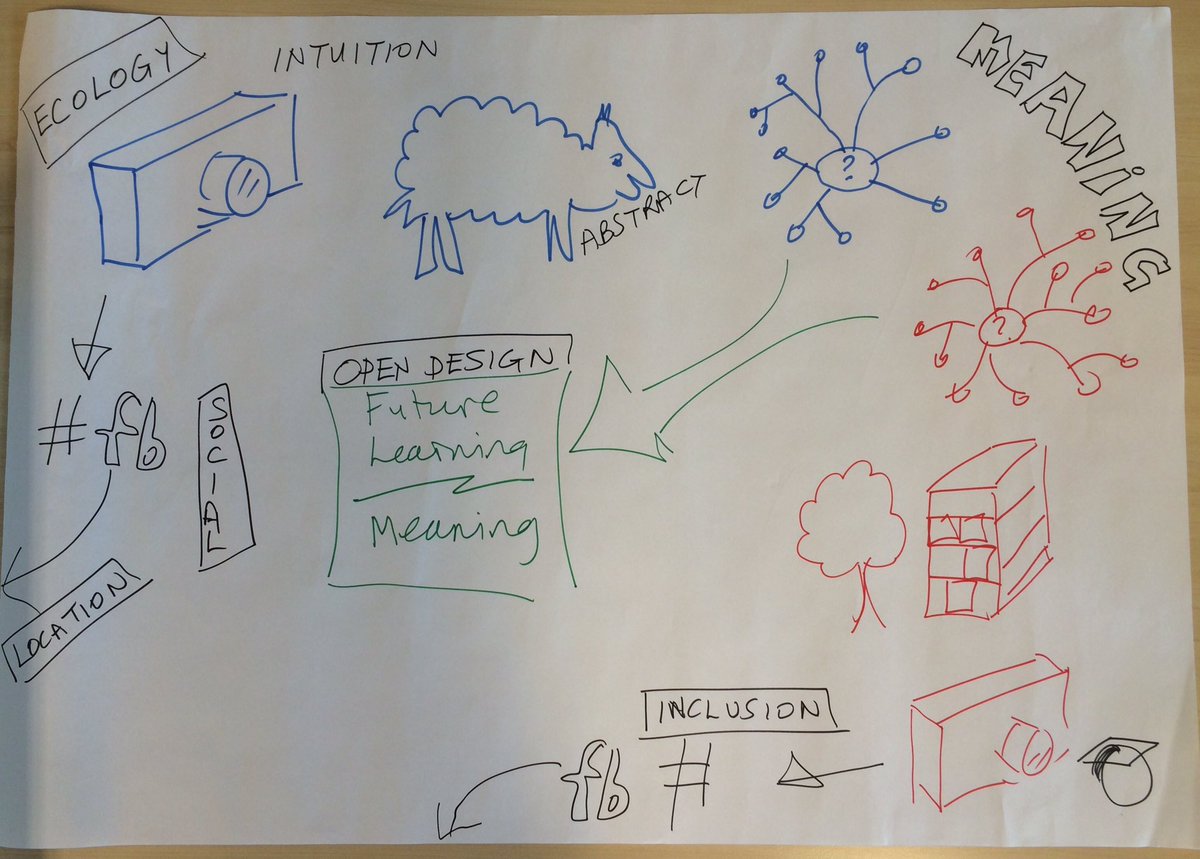 ECOLOGY
INTUITION
MEANiNG
ABSTRACT
?
?
# fb
SOCIAL
LOCATION
OPEN DESIGN
Future
Learning
Meaning
INCLUSION
fb #